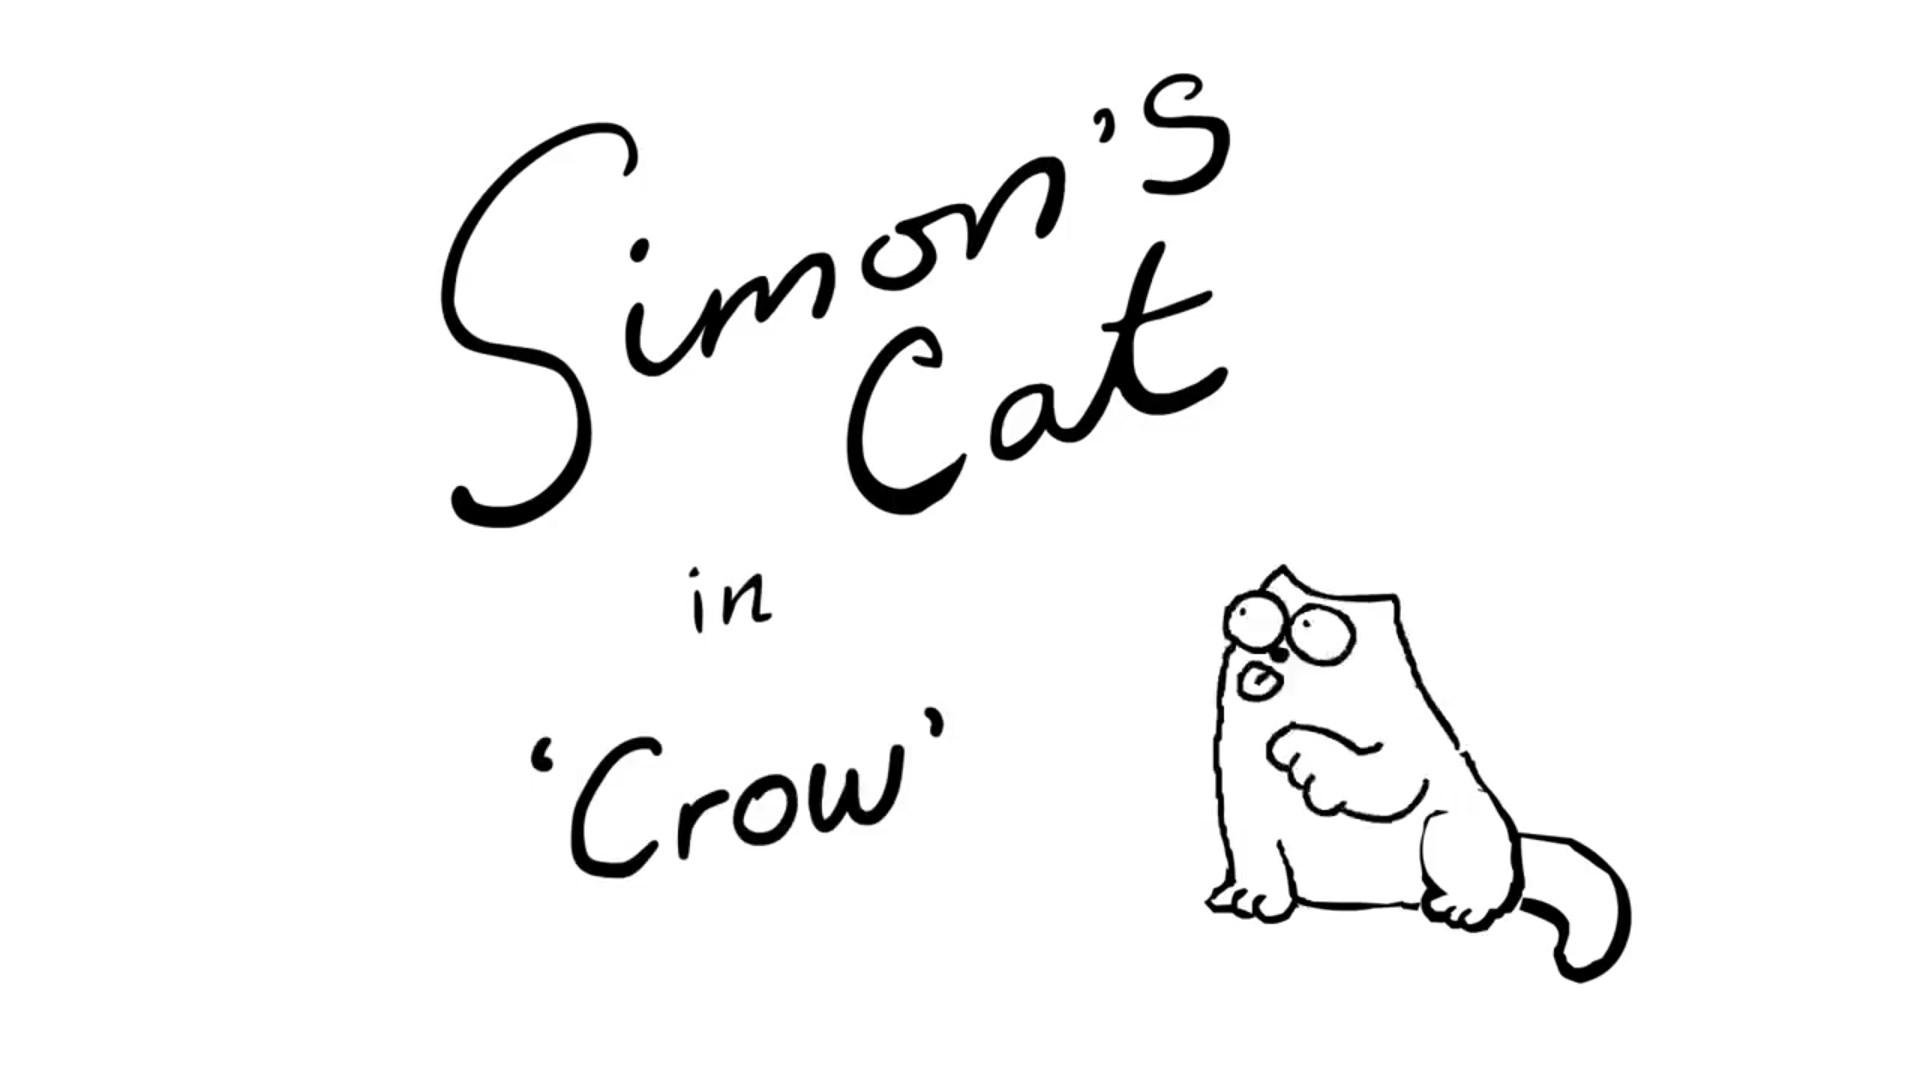 Simon's
Cat
in
‘Crow’